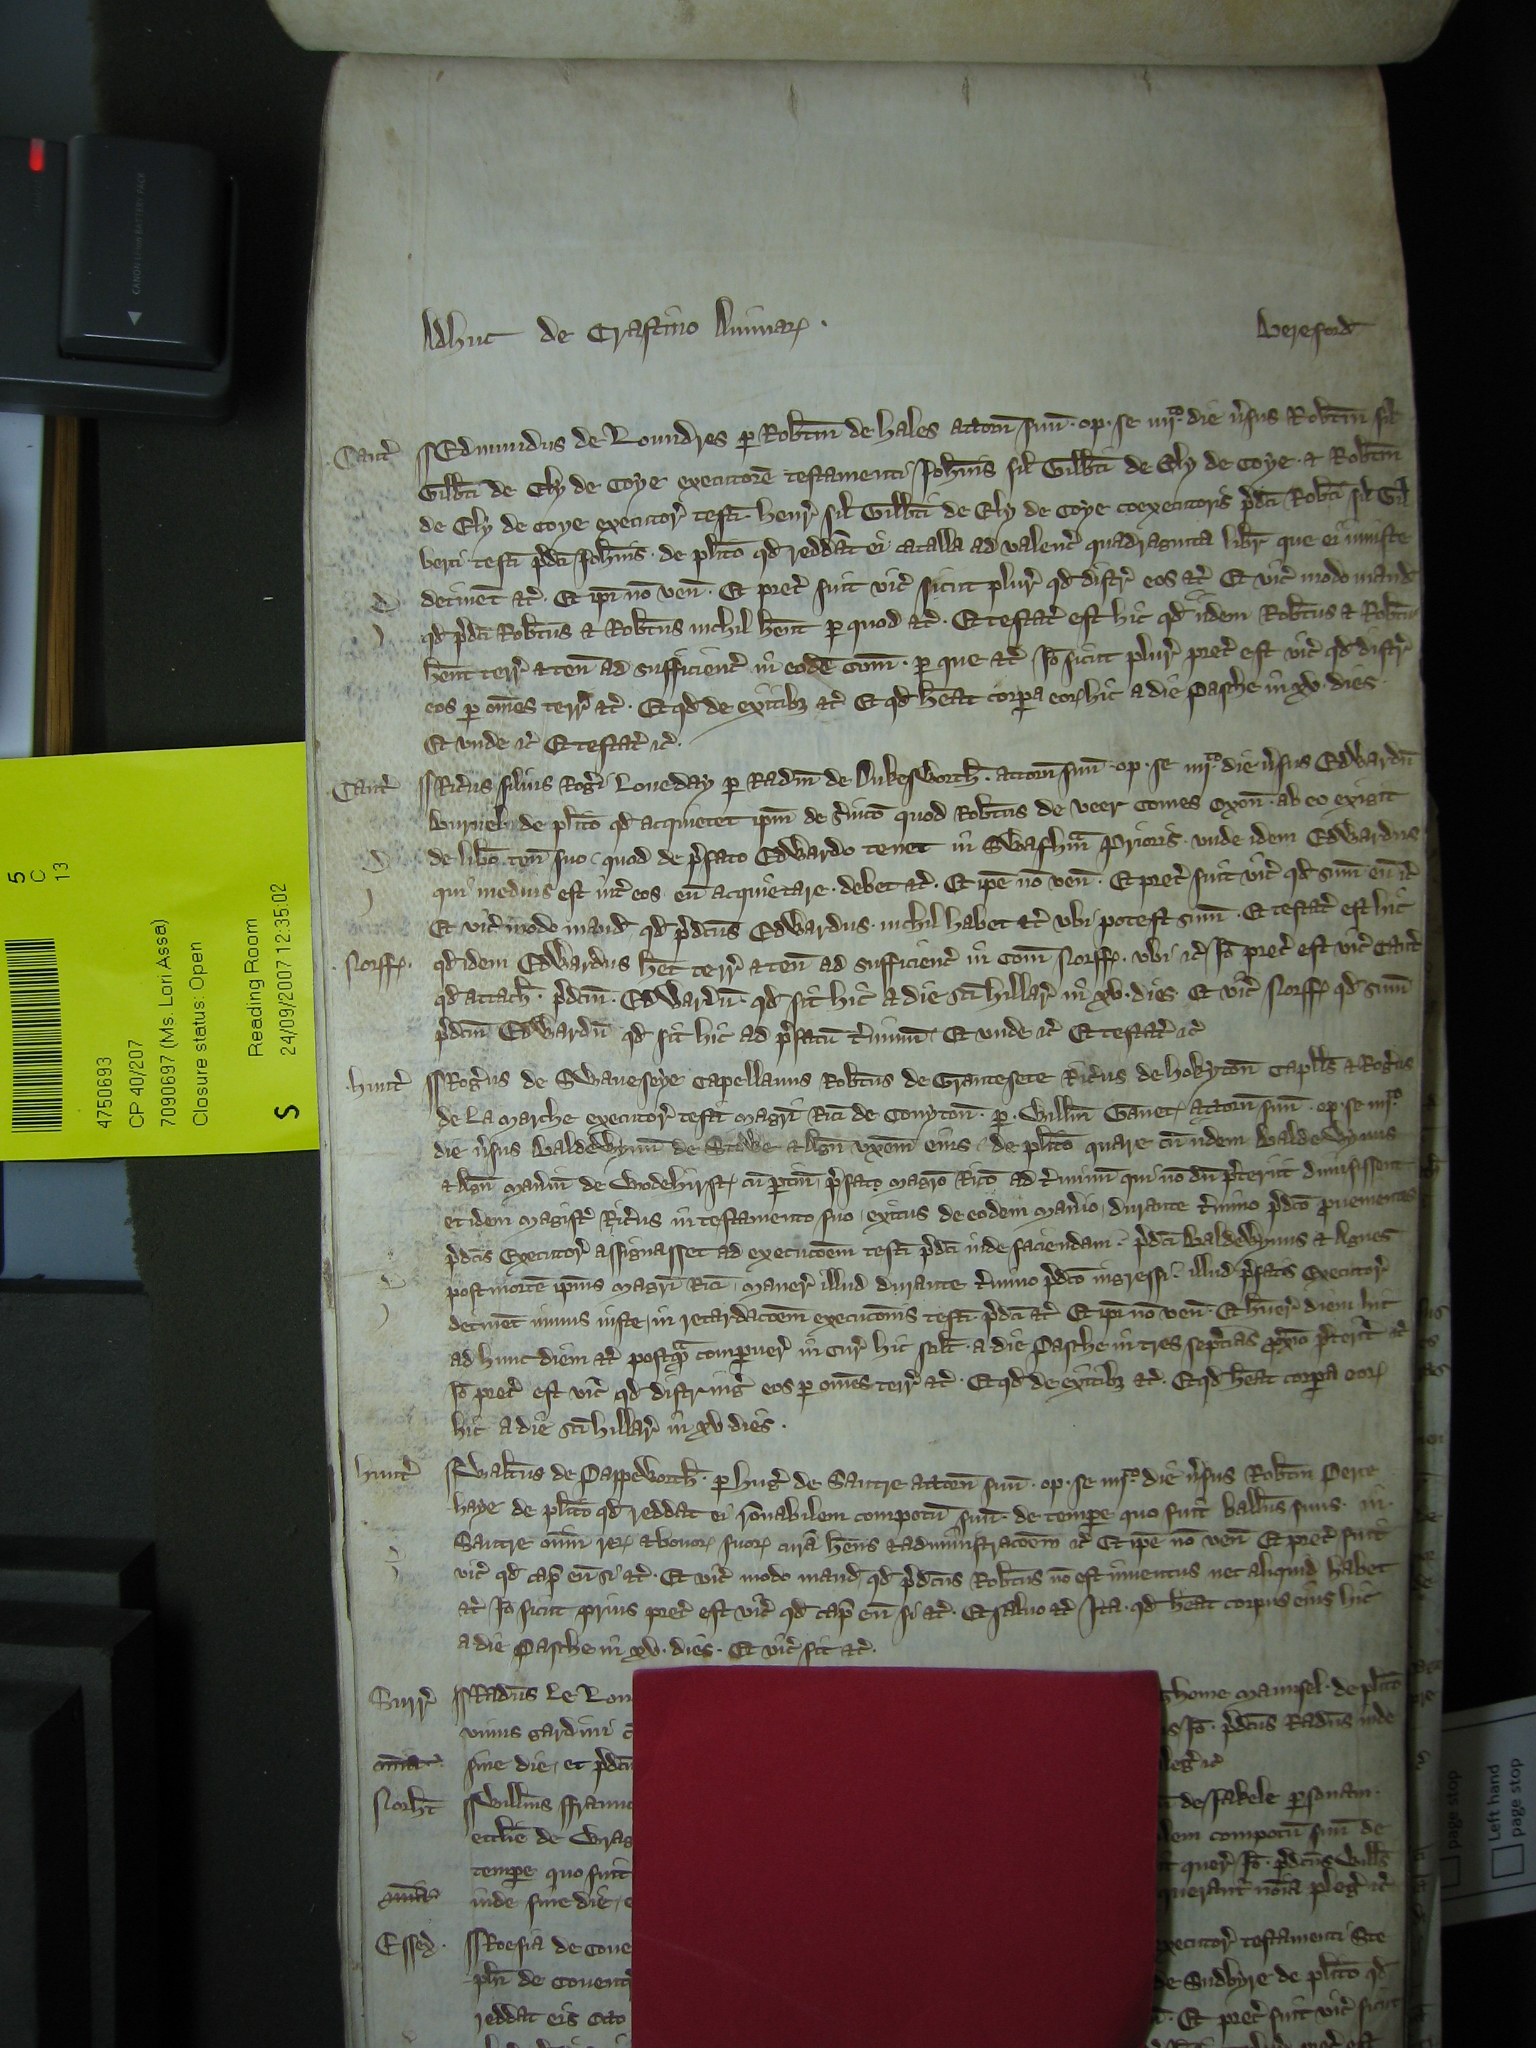 Adhuc de Crastino Animaꝝ. Bereford
Cant̄ Edmundus de Loundres p Rob̄tm de hales attorn̄ suū. op. se iiij.º die v̄sus Rob̄tm fil
Gilb̄ti de Ely de Coye executorē testamenti Joh̄nis fil Gilb̄ti de Ely de Coye. & Rob̄tm
de Ely de Coye executor̄ testi henr̄ fil Gilb̄ti de Ely de Coye coexecutoris p̄dc̄i Rob̄ti fil Gil
berti testi p̄dc̄i Joh̄nis. de plito qd reddāt ei catalla ad valenc̄ quadraginta libr̄ que ei iniuste
detinēt &c̄. Et ip̄i nō ven̄. Et prec̄ fuit vic̄ sicut plur̄ qd distr̄ eos &c̄ Et vic̄ modo mand̄
qd p̄dc̄i Rob̄tus & Rob̄tus nichil hēnt p quod &c̄. Et testat̄ est hic qd iidem Rob̄tus & Rob̄tus
hēnt terr̄ & ten̄ ad sufficienc̄ in eodē Com̄. p que &c̄ Jō sicut plur̄ prec̄ est vic̄ qd distr̄
eos p om̄es terr̄ &c̄. Et qd de exitibȝ &c̄ Et qd hēat corpa eoꝝ hic a die Pasche in xv. dies.
Et vnde ic̄ Et testat̄ ic̄.
Cant̄ Ric̄us filius Rog̃i Loueday p Rad̄m de Dukesworth̄. attorn̄ suū. op. se iiij.º die v̄sus Edwardū
Burnel de plito qd acquietet ip̄m de s̄uico quod Rob̄tus de veer Comes Oxon̄. ab eo exigit
de lib̄o ten̄ suo quod de p̄fato Edwardo tenet in Swafhm̄ Prioris. vnde idem Edwardus
qui medius est int̄ eos eū acquietare. debet &c̄. Et ip̄e nō ven̄. Et prec̄ fuit vic̄ qd sum̄ eū ic̄
Et vic̄ modo mand̄ qd p̄dc̄us Edwardus. nichil habet &c̄ vbi potest sum̄. Et testat̄ est hic
Norff̄. qd idem Edwardus hēt terr̄ & ten̄ ad sufficienc̄ in Com̄ Norff̄. vbi ic̄ Jō prec̄ est vic̄ Cant̄
qd attach̄. p̄dc̄m. Edwardū. qd sit hic a die sc̄i hillar̄ in xv. dies. Et vic̄ Norff̄ qd sum̄
p̄dc̄m Edwardū qd sit hic ad p̄fatū t̄minū. Et vnde ic̄ Et testat̄ ic̄
hunt̄ Rog̃us de Swaueseye Capellanus Rob̄tus de Grantesete Ric̄us de hokyton̄ Capll̄s & Rog̃us
de La Marche executor̄ testi mag̃ri Rici de Conyton̄. p. Willm̄ Ganet attorn̄ suū. op. se iiij.º
die v̄sus Baldewynū de Stowe & Agn̄ vxem̄ eius. de plito quare cū iidem Baldewynus
& Agn̄ man̄iū de Wodehirst cū ptin̄ p̄fato mag̃ro Rico ad t̄minū qui nōdū p̄teriit dimisissent
et idem magist̄ Ric̄us in testamento suo exitus de eodem man̄io durante t̄mino p̄dc̄o puenientes
p̄dc̄is Executor̄ assignasset ad execucōem testi p̄dc̄i inde faciendam. p̄dc̄i Baldewynus & Agnes
post mortē ip̄ius mag̃ri Rici. maner̄ illud durante t̄mino p̄dc̄o ingressi. illud p̄fatis Executor̄
detinēt minus iuste in retardac̄oem execuc̄onis testi. p̄dc̄i &c̄ Et ip̄i nō ven̄. Et h̄uer̄ diem hic
ad hunc diem &c̄ postq̄ compuer̄ in Cur̄ hic scilt̄. a die Pasche in tres septīas px̄io p̄terit̄ ic̄
Jō prec̄ est vic̄ qd distring̃ eos p om̄es terr̄ &c̄. Et qd de exitibȝ &c̄. Et qd hēat corpa eoꝝ
hic a die sc̄i hillar̄ in xv dies.
hunt̄ Walt̄us de Pappeworth̄. p hug̃ de Sautre attorn̄ suū. op. se iiij.º die v̄sus Rob̄tm Perte
haye de plito qd reddat ei r̄onabilem compotū suū. de tempe quo fuit ball̄us suus. in.
Sautre om̄iū reꝝ & bonoꝝ suoꝝ curā hēns & administrac̄oem ic̄ Et ip̄e nō ven̄ Et prec̄ fuit
vic̄ qd cap̄ eū si &c̄. Et vic̄ modo mand̄ qd p̄dc̄us Rob̄tus nō est inuentus nec aliquid habet
&c̄ Jō sicut prius prec̄ est vic̄ qd cap̄ eū si &c̄. Et saluo &c̄ Ita. qd hēat corpus eius hic
a die Pasche in xv. dies. Et vic̄ sit &c̄.
Surr̄ Rad̄us Le Lou ghome Maunsel. de plito
vnius gardini Jō. p̄dc̄us Rad̄us inde
sine die. et p̄dc̄ pleg̃ ic̄
Norht̄ Willm̄s ffraunc de Jakele psonam.
eccl̄ie de Wrag compotū suū de
tempe quo fuit quer̄ Jō. p̄dc̄us Will̄s
inde sine die. querant̄ no̅ia pleg̃ ic̄
Essex. Roesia de Coue executor̄ testamenti Ste
phi de Couentr̄ de Sudbyre de plito qd
reddat eis octo Et prec̄ fuit vic̄ sicut
5
C
13
4750693
CP 40/207
7090697 (Ms. Lori Assa)
Closure status: Open
Reading Room
S 24/09/2007 12:35:02
CANON LI-ION BATTERY PACK
page stop
Left hand
page stop